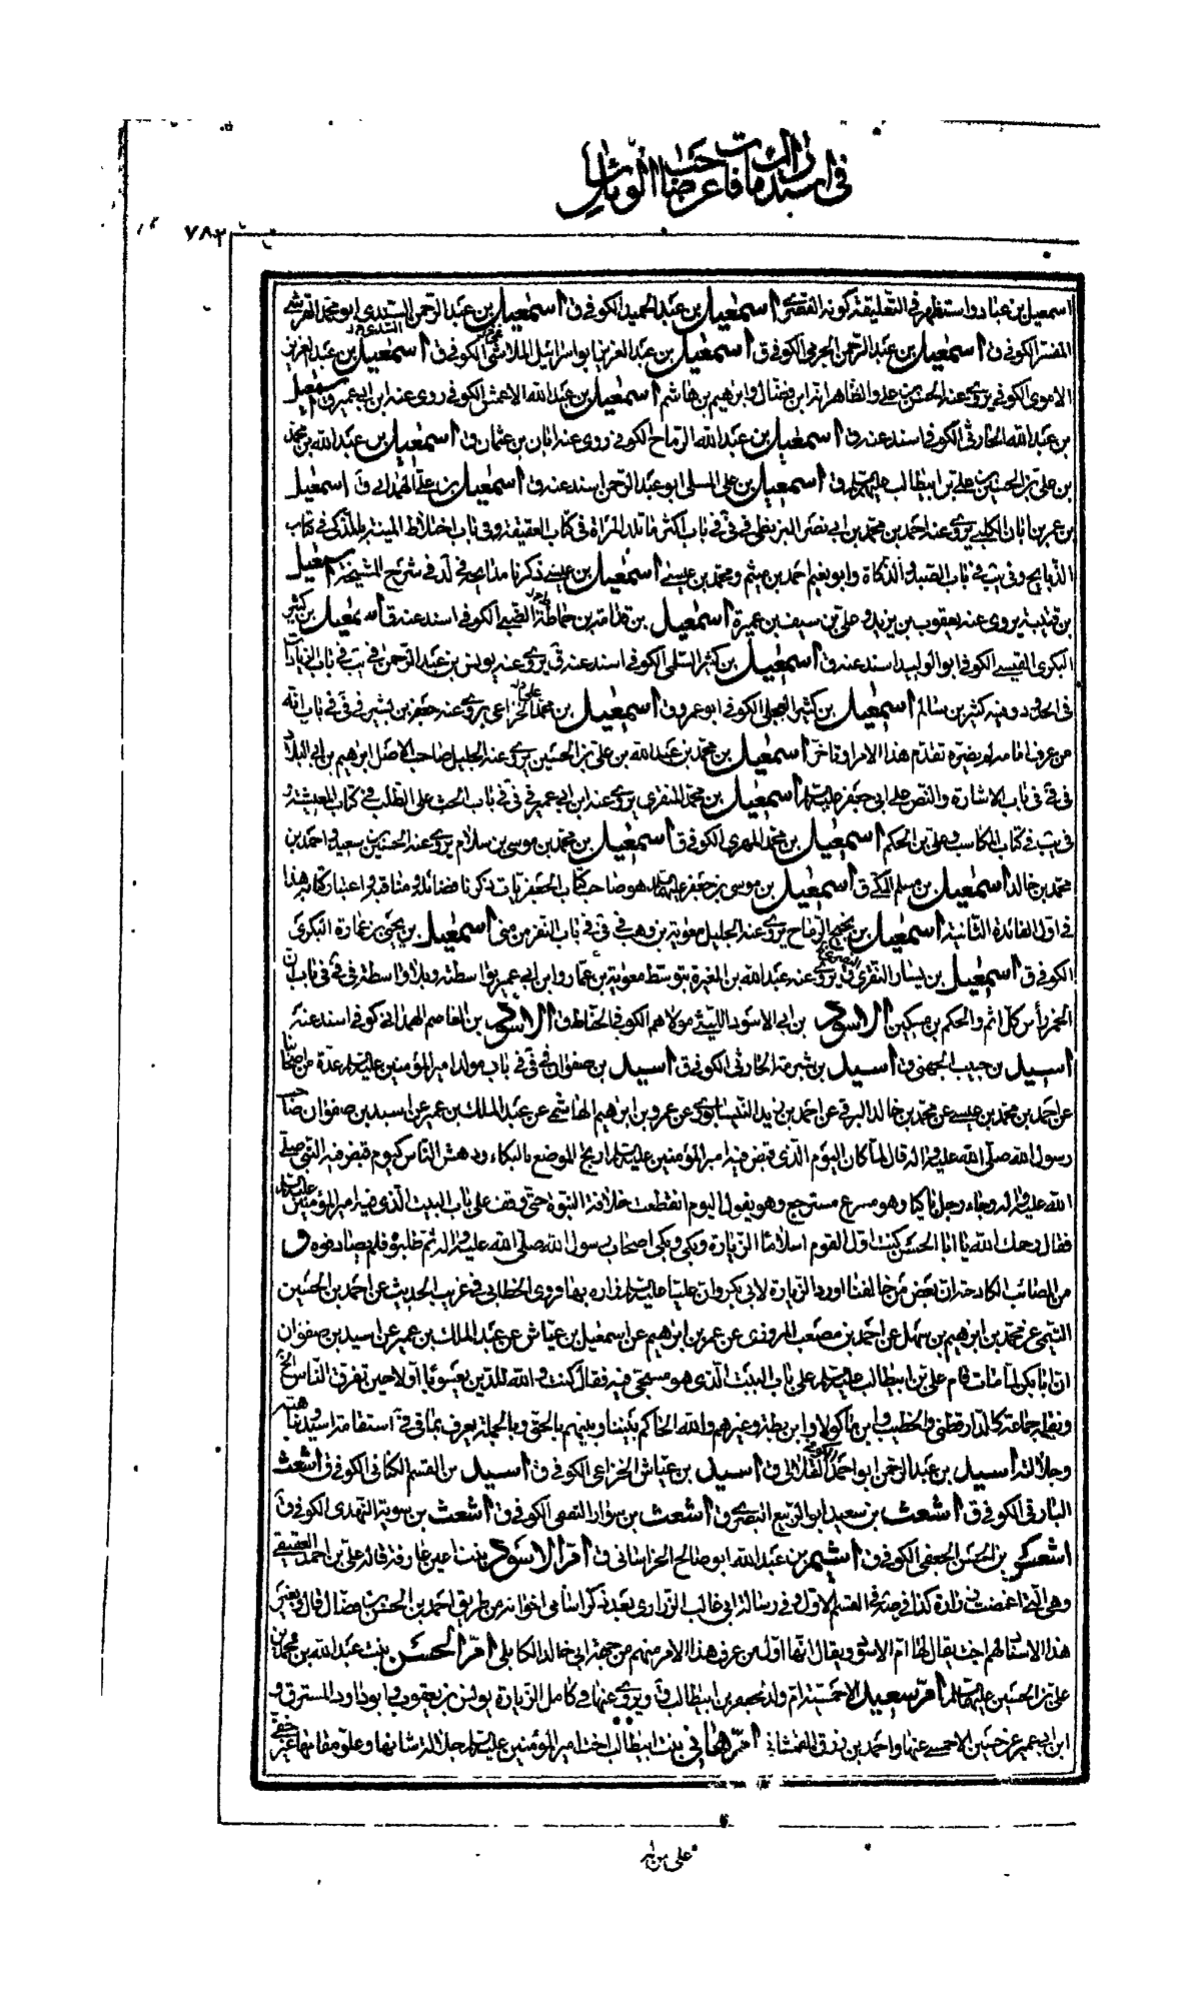 في استدراك مافات عن صاحب الوسائل
٧٨٣
اسمعيل بن عباد واستظهر في التعليقة كونه القصري اسمعيل بن عبد الحميد الكوفي ق اسمعيل بن عبد الرحمن السدى ابو محمد القرشي
المفسر الكوفي ق اسمعيل بن عبد الرحمن الجرمي الكوفي ق اسمعيل بن عبد العزيز ابو اسرائيل الملائي الكوفي ق اسمعيل بن عبد العزيز
الاموى الكوفي يروى عنه الحسن بن علي والظاهر انه ابن فضال وابرهيم بن هاشم اسمعيل بن عبد الله الاعمش الكوفي روى عنه ابن ابي عمير ق اسمعيل
بن عبد الله الحارثي الكوفي اسند عنه ق اسمعيل بن عبد الله الرماح الكوفي روى عنه ابان بن عثمان ق اسمعيل بن عبد الله بن محمد
بن علي بن الحسين بن علي بن ابيطالب عليهم السلام ق اسمعيل بن علي المسلى ابو عبد الرحمن اسند عنه ق اسمعيل بن علي الهمداني ق اسمعيل
بن عمر بن ابان الكلبي يروى عنه احمد بن محمد بن ابي نصر البزنطى في في باب اكثر ما تلد المرأة في كتاب العقيقة وفي باب اختلاط الميتة بالمذكى في كتاب
الذبايح وفي يب في باب الصيد والذكاة وابو نعيم احمد بن ميثم ومحمد بن عيسى اسمعيل بن عيسى ذكرنا مدائحه في لد في شرح المشيخة اسمعيل
بن قتيبة يروى عنه يعقوب بن يزيد وعلي بن سيف بن عميرة اسمعيل بن قدامة بن حماطة الضبي الكوفي اسند عنه ق اسمعيل بن كثير
البكرى القيسي الكوفي ابو الوليد اسند عنه ق اسمعيل بن كثير السلمي الكوفي اسند عنه ق يروى عنه يونس بن عبد الرحمن في يب في باب الزيادات
في الحدود وفيه كثير بن سالم اسمعيل بن كثير العجلي الكوفي ابو عمرو ق اسمعيل بن محمد الخزاعي يروى عنه جعفر بن بشير في في باب انه
من عرف امامه لم يضره تقدم هذا الامر او تاخر اسمعيل بن محمد بن عبد الله بن علي بن الحسين يروى عنه الجليل صاحب الاصل ابرهيم بن ابي البلاد
في في في باب الاشارة والنص على ابي جعفر عليه السلام اسمعيل بن محمد المنقرى يروى عنه ابن ابي عمير في في باب الحث على الطلب في كتاب المعيشة و
في يب في كتاب المكاسب وعلي بن الحكم اسمعيل بن محمد المهرى الكوفي ق اسمعيل بن محمد بن موسى بن سلام يروى عنه الحسين بن سعيد واحمد بن
محمد بن خالد اسمعيل بن مسلم المكي ق اسمعيل بن موسى بن جعفر عليهما السلام هو صاحب كتاب الجعفريات ذكرنا فضائله ومناقبه واعتبار كتابه هذا
في اول الفائدة الثانية اسمعيل بن نجيح الرماح يروى عنه الجليل معوية بن وهب في في باب النفر من منى اسمعيل بن يحيى بن عمارة البكرى
الكوفي ق اسمعيل بن يسار النقرى ق يروى عنه عبد الله بن المغيرة بتوسط معوية بن عمار وابن ابي عمير بواسطته وبلا واسطة في في باب ان
الخمر رأس كل اثم والحكم بن مسكين الاسود بن ابي الاسود الليثي مولاهم الكوفي الحناط ق الاسود بن العاصم الهمداني كوفي اسند عنه
اسيد بن حبيب الجهني ق اسيد بن شبرمة الحارثي الكوفي ق اسيد بن صفوان في في باب مولد امير المؤمنين عليه السلام عدة من اصحابنا
عن احمد بن محمد بن عيسى عن محمد بن خالد البرقي عن احمد بن زيد النيسابورى عن عمر بن ابرهيم الهاشمي عن عبد الملك بن عمير عن اسيد بن صفوان صاحب
رسول الله صلى الله عليه واله قال لما كان اليوم الذى قبض فيه امير المؤمنين عليه السلام ارتج الموضع بالبكاء ودهش الناس كيوم قبض فيه النبي صلى
الله عليه واله وجاء رجل باكيا وهو مسرع مسترجع وهو يقول اليوم انقطعت خلافة النبوة حتى وقف على باب البيت الذى فيه امير المؤمنين عليه السلام
فقال رحمك الله يا ابا الحسن كنت اول القوم اسلاما الزيارة وبكى وبكى اصحاب رسول الله صلى الله عليه واله ثم طلبوه فلم يصادفوه و
من المصائب الكادحة ان بعض من خالفنا اورد الزيارة لابي بكر وان عليا عليه السلام زاره بها فروى الخطابي في غريب الحديث عن احمد بن الحسين
التيمي عن محمد بن ابرهيم بن سهل عن احمد بن مصعب المروزى عن عمر بن ابرهيم عن اسمعيل بن عياش عن عبد الملك بن عمير عن اسيد بن صفوان
ان ابا بكر لما مات قام علي بن ابيطالب عليه السلام على باب البيت الذى هو مسجى فيه فقال كنت والله للدين يعسوبا اولا حين تفرق الناس الخ
ونقله جماعة كالدار قطني والخطيب وابن ماكولا وابن بطة وغيرهم والله الحاكم بيننا وبينهم بالحق وبالجملة يعرف بما في في استقامة اسيد بل
وجلالته اسيد بن عبد الرحمن ابو احمد ق اسيد بن عياش الخزاعي الكوفي ق اسيد بن القسم الكناني الكوفي ق اشعث
البارقي الكوفي ق اشعث بن سعيد ابو الربيع البصرى ق اشعث بن سوار الثقفي الكوفي ق اشعث بن سويد النهدى الكوفي ق
بن الحسن الجعفي الكوفي ق اشيم بن عبد الله ابو صالح الخراساني ق ام الاسود بنت اعين عارفة قاله علي بن احمد العقيقي
وهي التي اغمضت زرارة كذا في صه في القسم الاول وفي رسالة ابي غالب الزرارى بعد ذكر اسامي اخوانه من طريق احمد بن الحسن بن فضال قال وبغير
هذا الاسناد لهم اخت يقال لها ام الاسود ويقال انها اول من عرف هذا الامر منهم من جهة ابي خالد الكابلي ام الحسن بنت عبد الله بن محمد بن
علي بن الحسين عليهما السلام ام سعيد الاحمسية ام ولد لجعفر بن ابيطالب ق ويروى عنها في كامل الزيارة يونس بن يعقوب وابو داود المسترق و
ابن ابي عمير عن حسين الاحمسي عنها واحمد بن رزق الغمشاني ام هاني بنت ابيطالب اخت امير المؤمنين عليه السلام جلالة شانها وعلو مقامها غير خفي
على من له